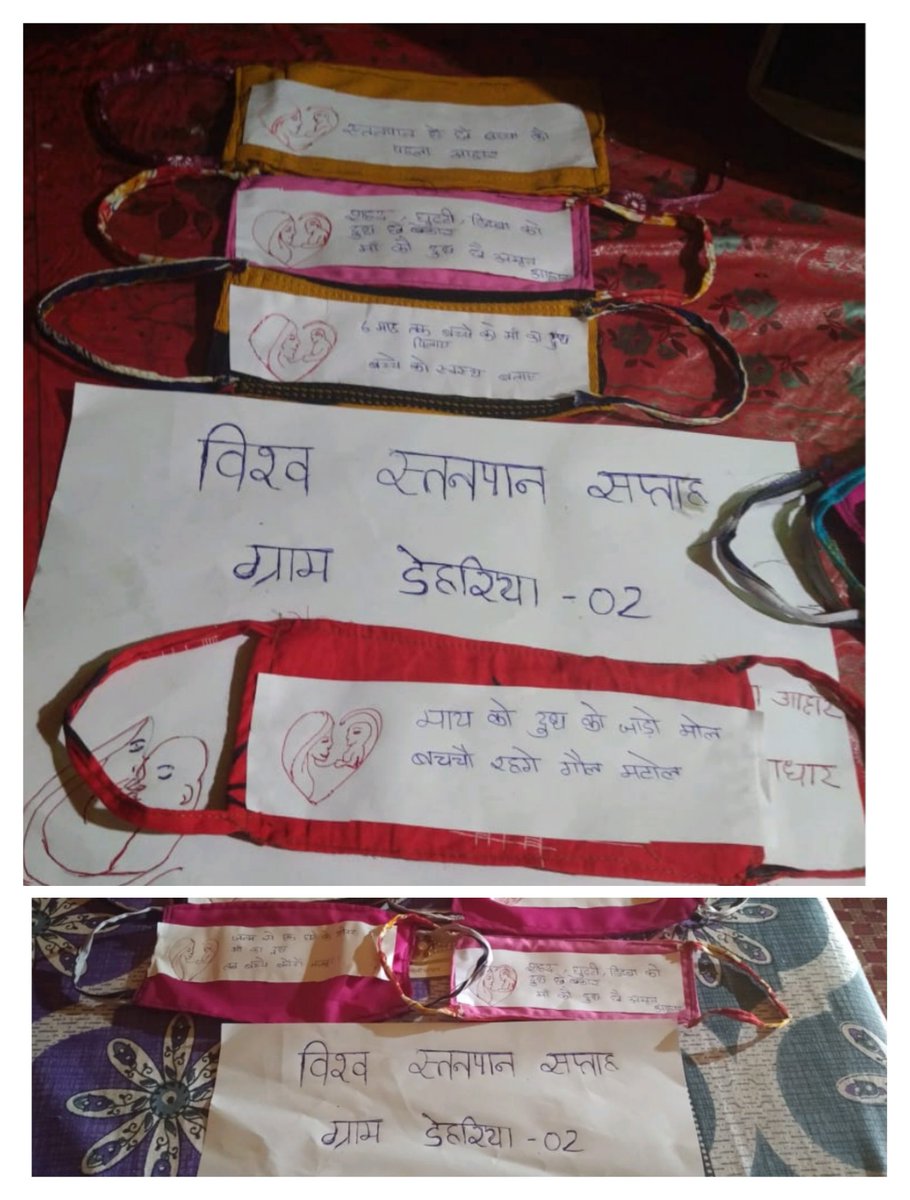 स्तनपान है बच्चा की
पहला आहार
शहद, घुट्टी, डिब्बा को
दूध है बेकार
माँ को दूध है अमृत
आहार
6 माह तक बच्चे को माँ का दूध
पिलाए
बच्चे को स्वस्थ बनाए
विश्व स्तनपान सप्ताह
ग्राम डेहरिया -02
माय को दुध को जोड़ो मोल
बचचौ रहगे गौल मटोल
आहार
धार
माँ का दूध
शहद, घुट्टी, डिब्बा को
दूध है बेकार
माँ को दूध है अमृत
आहार
विश्व स्तनपान सप्ताह
ग्राम डेहरिया -02